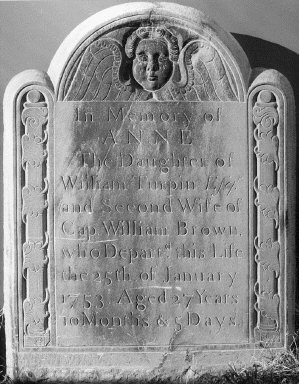 In Memory of
ANNE
The Daughter of
William Turpin Esq.
and Second Wife of
Cap. William Brown,
who Depart.ᵈ this Life
the 25th of January
1753 Aged 27 Years
10 Months & 5 Days.